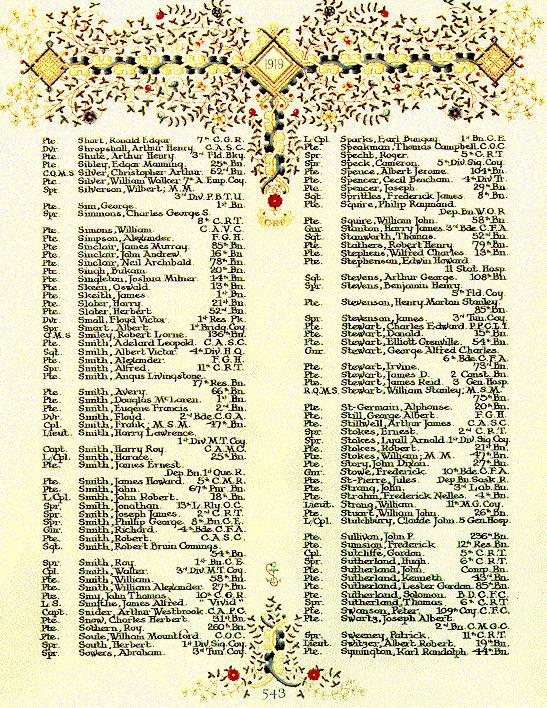 1919
C.O.R.F.
Pte. Short, Ronald Edgar 7th C.G.R.
Dvr. Shropshall, Arthur Henry C.A.S.C.
Pte. Shute, Arthur Henry 3rd Fld. Bky.
Pte. Sibley, Edgar Manning 25th Bn.
C.Q.M.S. Silver, Christopher Arthur 52nd Bn.
Pte. Silver, William Walter 7th A. Emp. Coy.
Spr. Silverson, Wilbert; M.M.
3rd Div. P.B.T.U.
Pte. Sim, George 1st Bn.
Spr. Simmons, Charles George S.
8th C.R.T.
Pte. Simons, William C.A.V.C.
Pte. Simpson, Alexander F.G.H.
Pte. Sinclair, James Murray 85th Bn.
Pte. Sinclair, John Andrew 16th Bn.
Pte. Sinclair, Neil Archbald 78th Bn.
Pte. Singh, Bukam 20th Bn.
Pte. Singleton, Joshua Milner 14th Bn.
Pte. Skeen, Oswald 13th Bn.
Pte. Skeith, James 1st Bn.
Pte. Slater, Harry 21st Bn.
Pte. Slater, Herbert 52nd Bn.
Dvr. Small, Floyd Victor 1st Res. Pk.
Spr. Smart, Albert 1st Bridg. Coy.
C.M.S. Smiley, Robert Lorne 136th Bn.
Pte. Smith, Adelard Leopold C.A.S.C.
Sgt. Smith, Albert Victor 4th Div. H.Q.
Pte. Smith, Alexander F.G.H.
Spr. Smith, Alfred 11th C.R.T.
Pte. Smith, Angus Livingstone
17th Res. Bn.
Pte. Smith, Avery 66th Bn.
Pte. Smith, Douglas McLaren 1st Bn.
Pte. Smith, Eugene Francis 2nd Bn.
Dvr. Smith, Floyd 2nd Bde. C.G.A.
Cpl. Smith, Frank; M.S.M. 47th Bn.
Lieut. Smith, Harry Lawrence
1st Div. M.T. Coy.
Capt. Smith, Harry Roy C.A.M.C.
L/Cpl. Smith, Horace 25th Bn.
Pte. Smith, James Ernest
Dep. Bn. 1st Que. R.
Pte. Smith, James Howard 5th C.M.R.
Pte. Smith, John 67th For. Bn.
L/Cpl. Smith, John Robert 18th Bn.
Spr. Smith, Jonathan 13th L. Rly. O.C.
Spr. Smith, Joseph James 2nd C.R.T.
Spr. Smith, Phillip George 8th Bn. C.E.
Gnr. Smith, Richard 4th Bde. C.F.A.
Pte. Smith, Robert C.A.S.C.
Sgt. Smith, Robert Bruin Comings
54th Bn.
Spr. Smith, Roy 1st Bn. C.E.
Cpl. Smith, Walter 3rd Div. M.T. Coy.
Pte. Smith, William 58th Bn.
Pte. Smith, William Alexander 27th Bn.
Pte. Smy, John Thomas 10th C.G.R.
L.S. Smythe, James Alfred "Vivid"
Capt. Snider, Arthur Westbrook C.A.P.C.
Pte. Snow, Charles Herbert 31st Bn.
Pte. Sothern, Roy 260th Bn.
Pte. Soule, William Mountford C.O.C.
Spr. South, Herbert 1st Div. Sig. Coy.
Spr. Sowers, Abraham 3rd Tun. Coy.
L/Cpl. Sparks, Earl Bungay 1st Bn. C.E.
Pte. Speakman, Thomas Campbell C.O.C.
Spr. Specht, Roger 5th C.R.T.
Spr. Speck, Cameron 5th Div. Sig. Coy.
Pte. Spence, Albert Jerome 104th Bn.
Pte. Spencer, Cecil Beacham 4th Div. Tr.
Pte. Spencer, Joseph 29th Bn.
Sgt. Sprittles, Frederick James 8th Bn.
Pte. Squire, Philip Raymond
Dep. Bn. W.O.R.
Pte. Squire, William John 58th Bn.
Gnr. Stanton, Harry James 3rd Bde. C.F.A.
Sgt. Stanworth, Thomas 52nd Bn.
Pte. Stathers, Robert Henry 79th Bn.
Pte. Stephens, Wilfred Charles 13th Bn.
Pte. Stephenson, Edwin Howard
11 Stat. Hosp.
Sgt. Stevens, Arthur George 108th Bn.
Spr. Stevens, Benjamin Henry
5th Fld. Coy.
Pte. Stevenson, Henry Morton Stanley
85th Bn.
Spr. Stevenson, James 3rd Tun. Coy.
Pte. Stewart, Charles Edward P.P.C.L.I.
Pte. Stewart, Donald 15th Bn.
Pte. Stewart, Elliott Grenville 54th Bn.
Gnr. Stewart, George Alfred Charles
6th Bde. C.F.A.
Pte. Stewart, Irvine 73rd Bn.
Pte. Stewart, James D. 2 Const. Bn.
Pte. Stewart, James Reid 3 Gen. Hosp.
R.Q.M.S. Stewart, William Stanley; M.S.M.
75th Bn.
Pte. St-Germain, Alphonse 20th Bn.
Pte. Still, George Albert F.G.H.
Pte. Stillwell, Arthur James C.A.S.C.
Spr. Stokes, Ernest 2nd C.R.T.
Spr. Stokes, Lyall Arnold 1st Div. Sig. Coy.
Pte. Stokes, Robert 21st Bn.
Pte. Stokes, William; M.M. 47th Bn.
Pte. Story, John Dixon 27th Bn.
Gnr. Stowe, Frederick 10th Bde. C.F.A.
Pte. St-Pierre, Jules Dep. Bn. Sask. R.
Pte. Strang, John 3rd Lab. Bn.
Pte. Strahm, Frederick Nelles 4th Bn.
Lieut. Strang, William 11th M.G. Coy.
Pte. Stuart, William John 26th Bn.
L/Cpl. Stutchbury, Claude John 5 Gen. Hosp.
Pte. Sullivan, John P. 236th Bn.
Pte. Sumsion, Frederick 12th Res. Bn.
Cpl. Sutcliffe, Gordon 5th C.R.T.
Spr. Sutherland, Hugh 6th C.R.T.
Pte. Sutherland, John Comp. Bn.
Pte. Sutherland, Kenneth 43rd Bn.
Pte. Sutherland, Lester Gordon 85th Bn.
Pte. Sutherland, Solomon B.D. C.F.C.
Spr. Sutherland, Thomas 6th C.R.T.
Pte. Swanson, Peter 109th Coy. C.F.C.
Pte. Swartz, Joseph Albert
2nd Bn. C.M.G.C.
Spr. Sweeney, Patrick 11th C.R.T.
Lieut. Switzer, Albert Robert 19th Bn.
Pte. Symington, Karl Randolph 44th Bn.
543